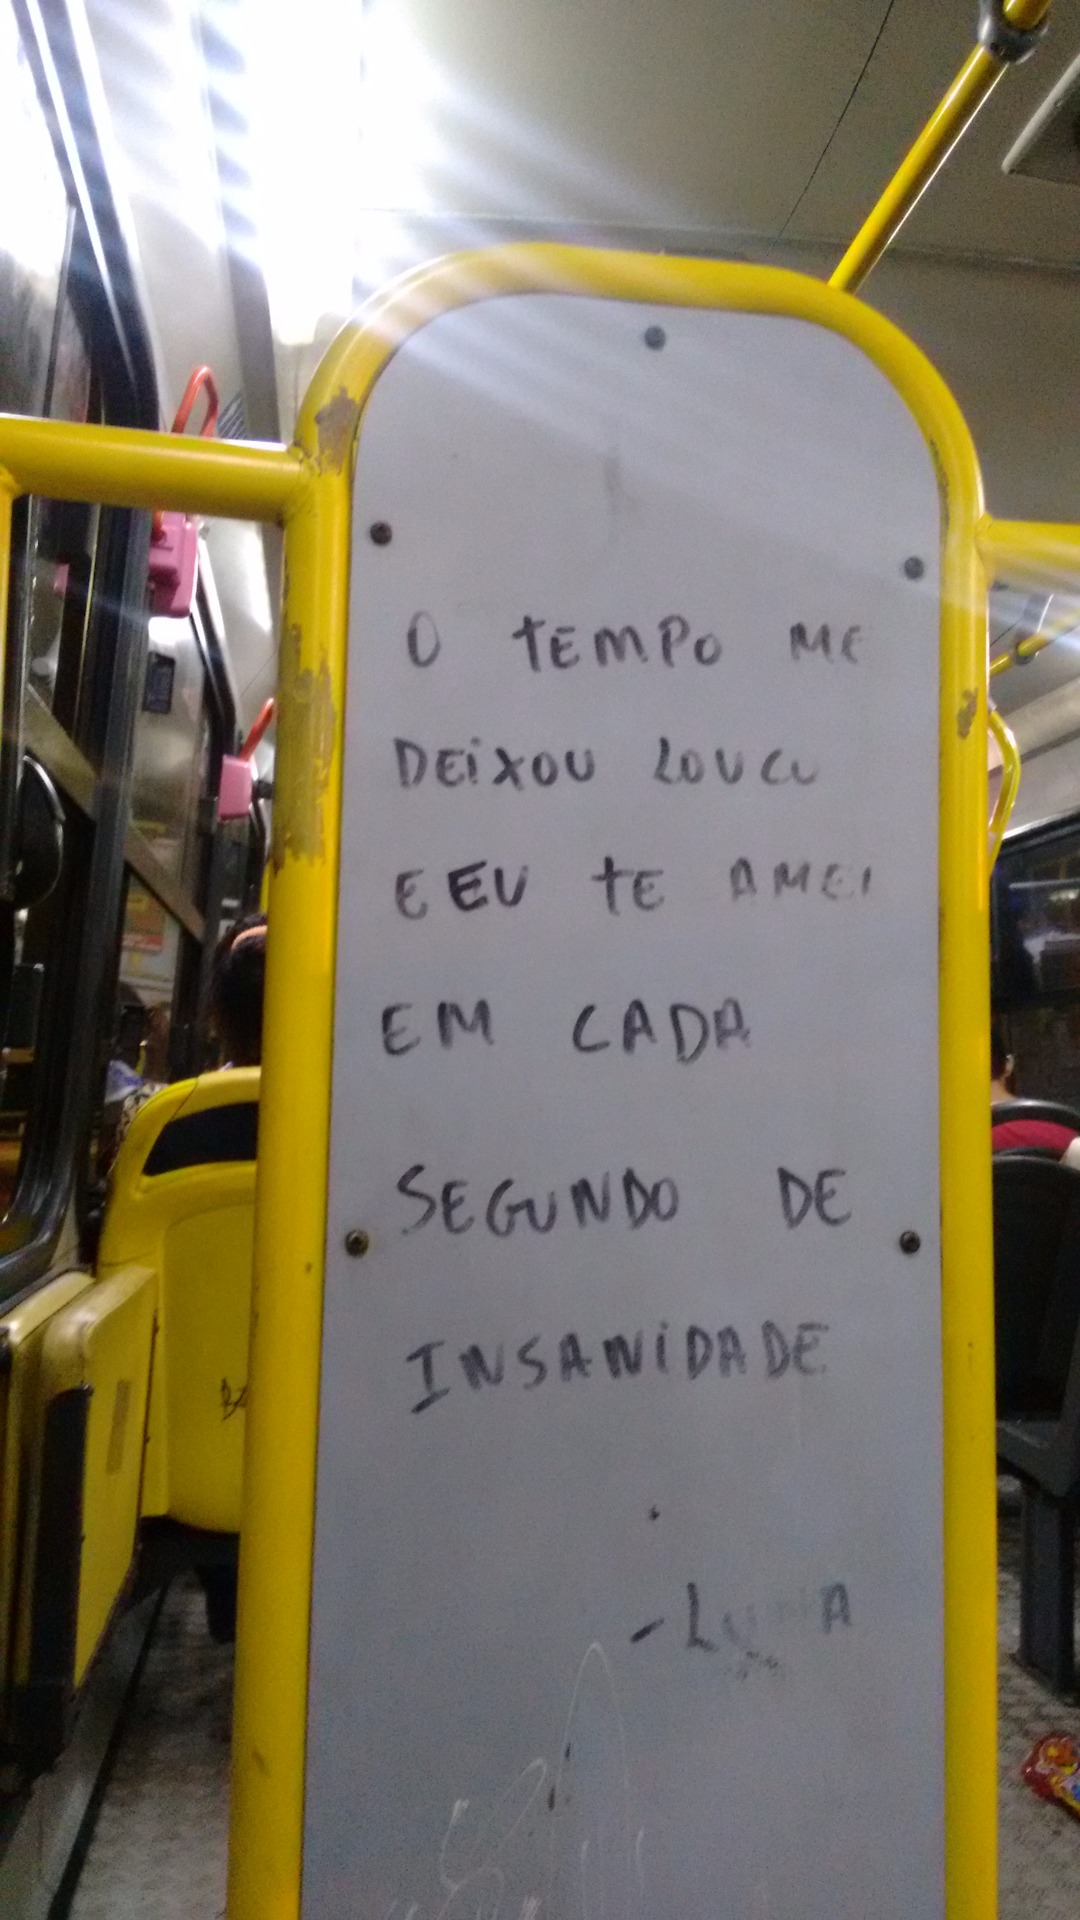 O TEMPO ME
DEIXOU LOUCO
E EU TE AMEI
EM CADA
SEGUNDO DE
INSANIDADE